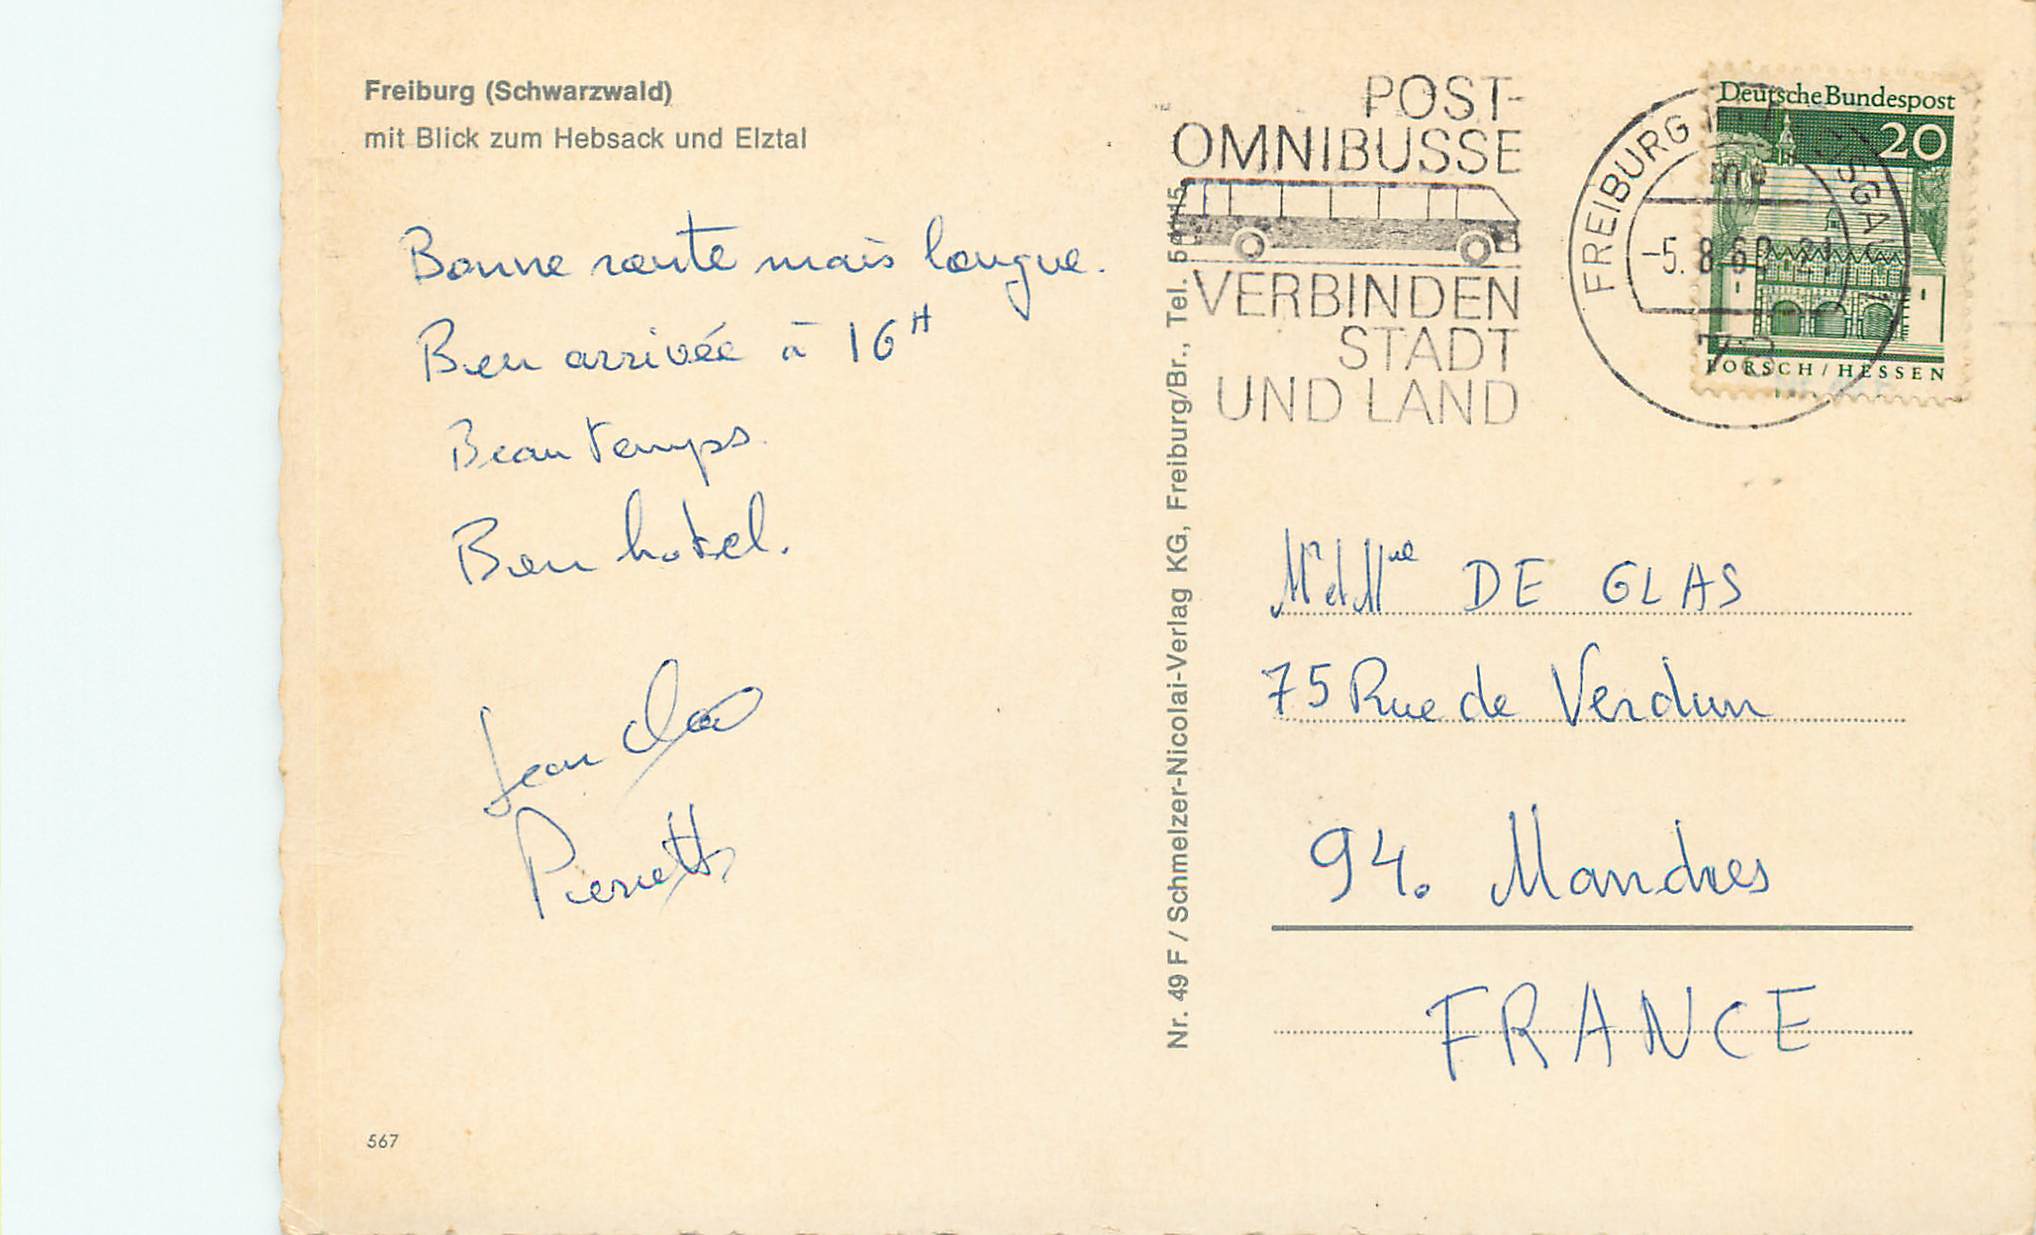 Freiburg (Schwarzwald)
mit Blick zum Hebsack und Elztal
Bonne route mais longue.
Bien arrivée à 16H
Beau temps.
Bon hotel.
Jean
Pierrette
567
Nr. 49 F / Schmelzer-Nicolai-Verlag KG, Freiburg/Br., Tel.
POST-
OMNIBUSSE
VERBINDEN
STADT
UND LAND
FREIBURG
-5.8.6
Deutsche Bundespost
20
LORSCH / HESSEN
Mr et Mme DE GLAS
75 Rue de Verdun
94. Mandres
FRANCE